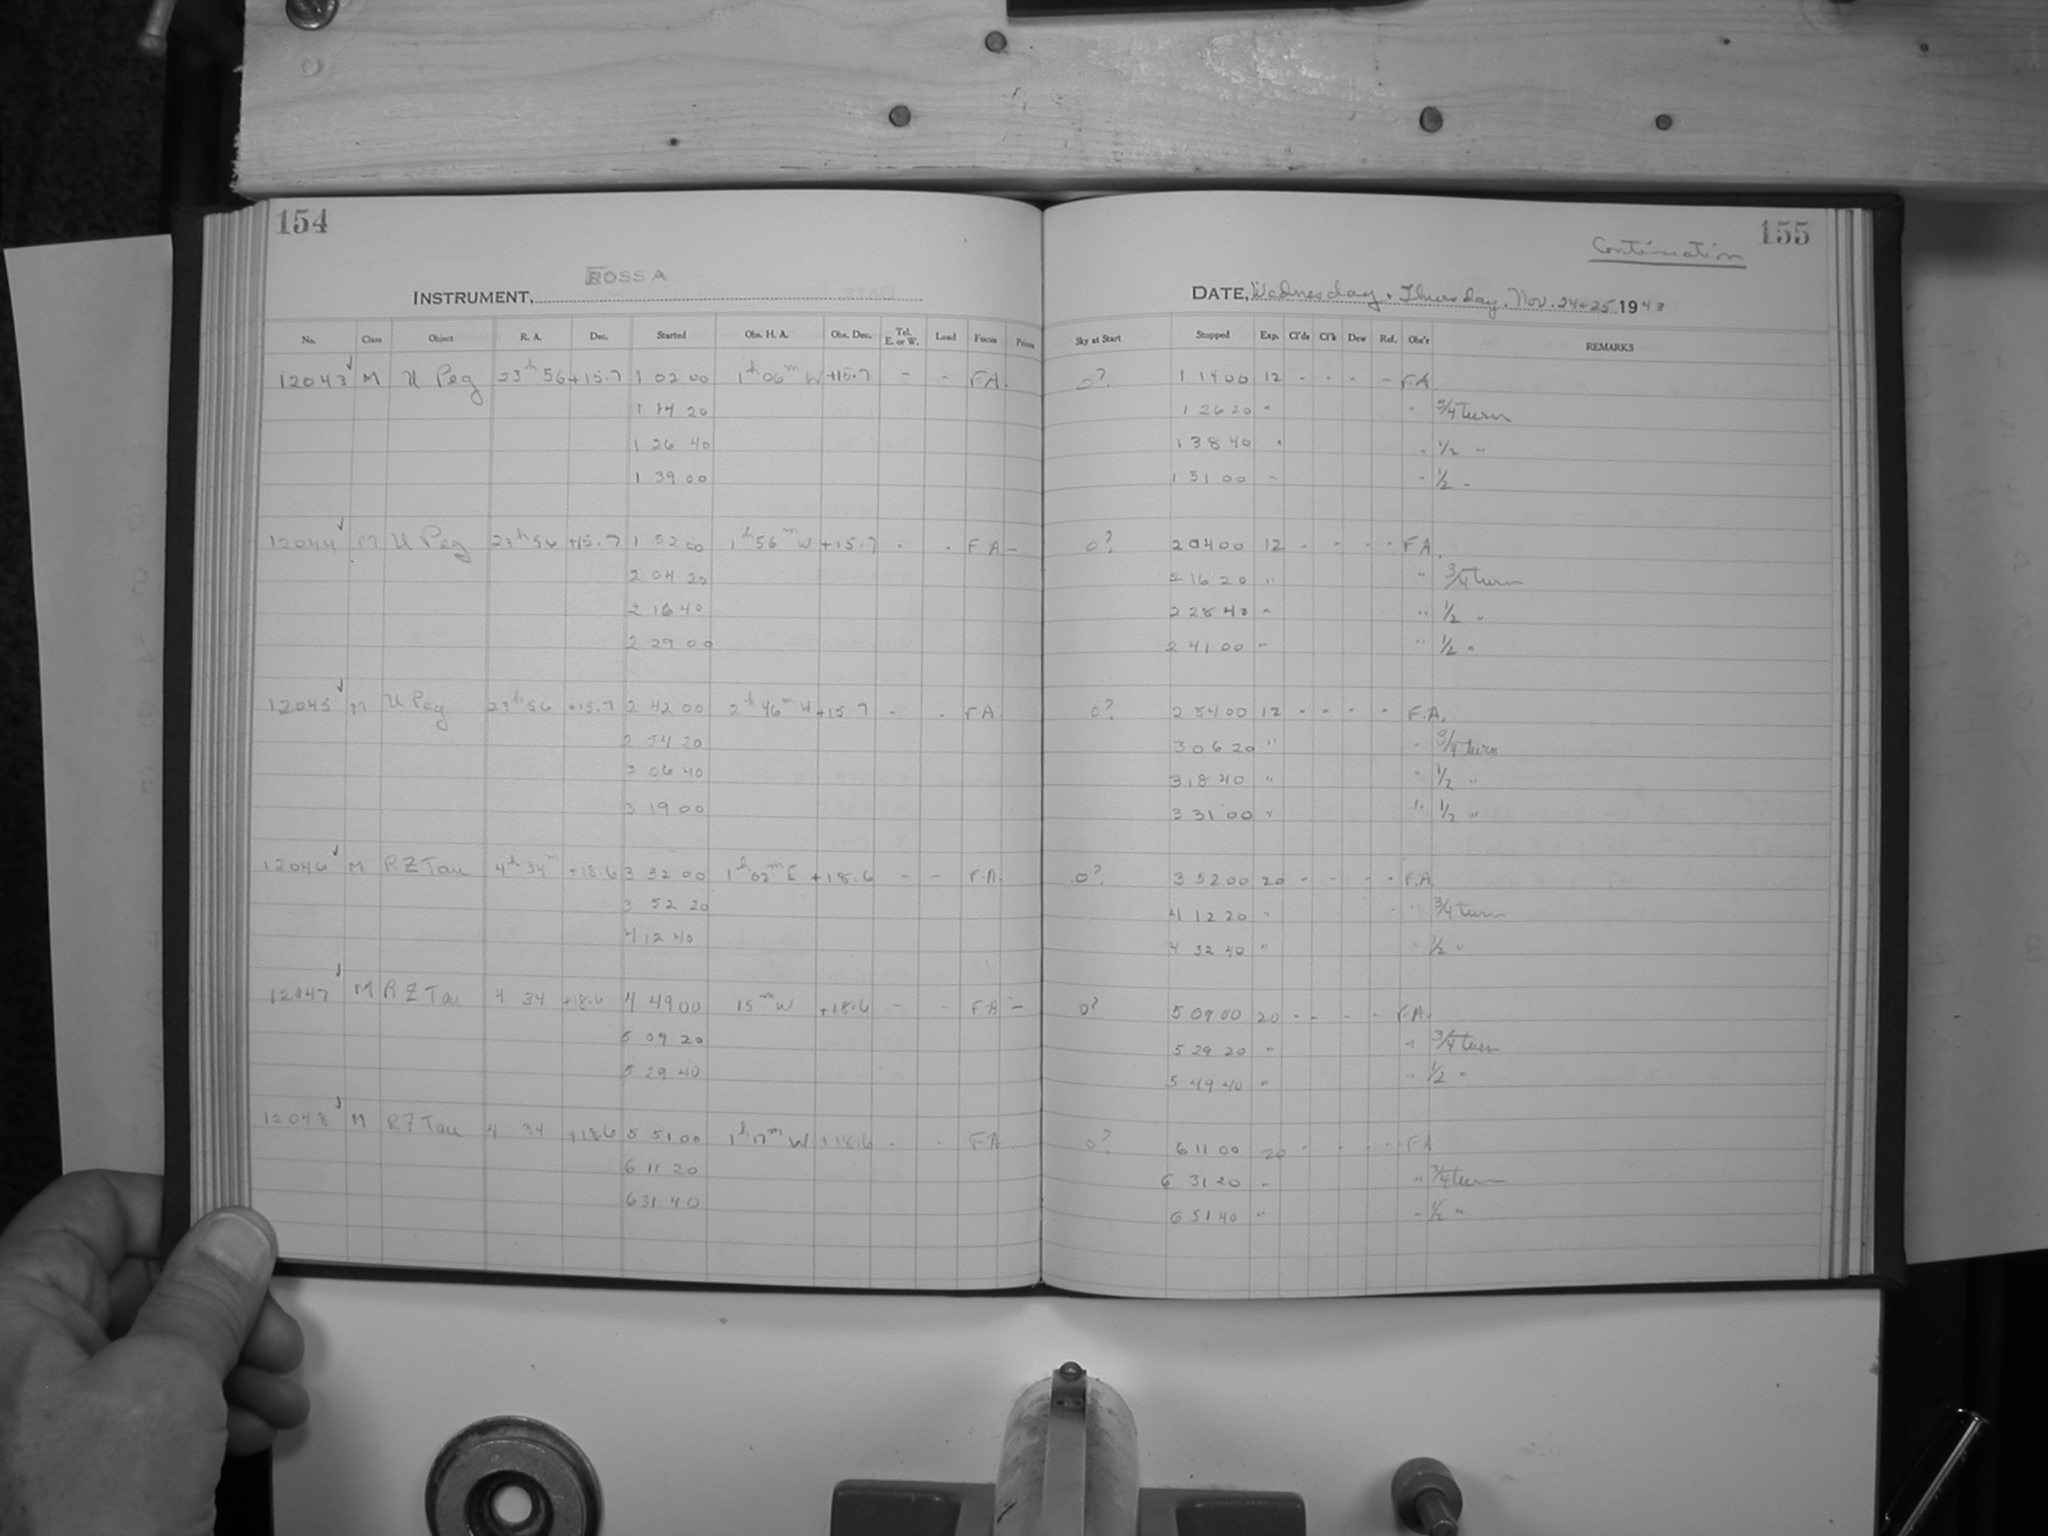 154
155
Continuation
ROSS A
INSTRUMENT,
DATE, Wednesday + Thursday, Nov. 24-25 1943
No. Class Object R. A. Dec. Started Obs. H. A. Obs. Dec. Tel. E. or W. Load Focus Prism Sky at Start Stopped Exp. Cl'ds Cl'k Dew Ref. Obs'r REMARKS
12043 M U Peg 23h 56 +15.7 1 02 00 1h 06m W +15.7 - - F.A. 0? 1 14 00 12 - - - - F.A.
1 14 20 1 26 20 " " 3/4 turn
1 26 40 1 38 40 " " 1/2 "
1 39 00 1 51 00 " " 1/2 "
12044 M U Peg 23h 56 +15.7 1 52 00 1h 56m W +15.7 - - F A - 0? 2 04 00 12 - - - - F A.
2 04 20 2 16 20 " " 3/4 turn
2 16 40 2 28 40 " " 1/2 "
2 29 00 2 41 00 " " 1/2 "
12045 M U Peg 23h 56 +15.7 2 42 00 2h 46m W +15.7 - - F A 0? 2 54 00 12 - - - - F.A.
2 54 20 3 06 20 " " 3/4 turn
3 06 40 3 18 40 " " 1/2 "
3 19 00 3 31 00 " " 1/2 "
12046 M RZ Tau 4h 34m +18.6 3 32 00 1h 02m E +18.6 - - F.A. 0? 3 52 00 20 - - - - F.A.
3 52 20 4 12 20 " " 3/4 turn
4 12 40 4 32 40 " " 1/2 "
12047 M RZ Tau 4 34 +18.6 4 49 00 15m W +18.6 - - F A - 0? 5 09 00 20 - - - - F.A.
5 09 20 5 29 20 " " 3/4 turn
5 29 40 5 49 40 " " 1/2 "
12048 M RZ Tau 4 34 +18.6 5 51 00 1h 17m W +18.6 - - F A 0? 6 11 00 20 - - - - F A
6 11 20 6 31 20 " " 3/4 turn
6 31 40 6 51 40 " " 1/2 "